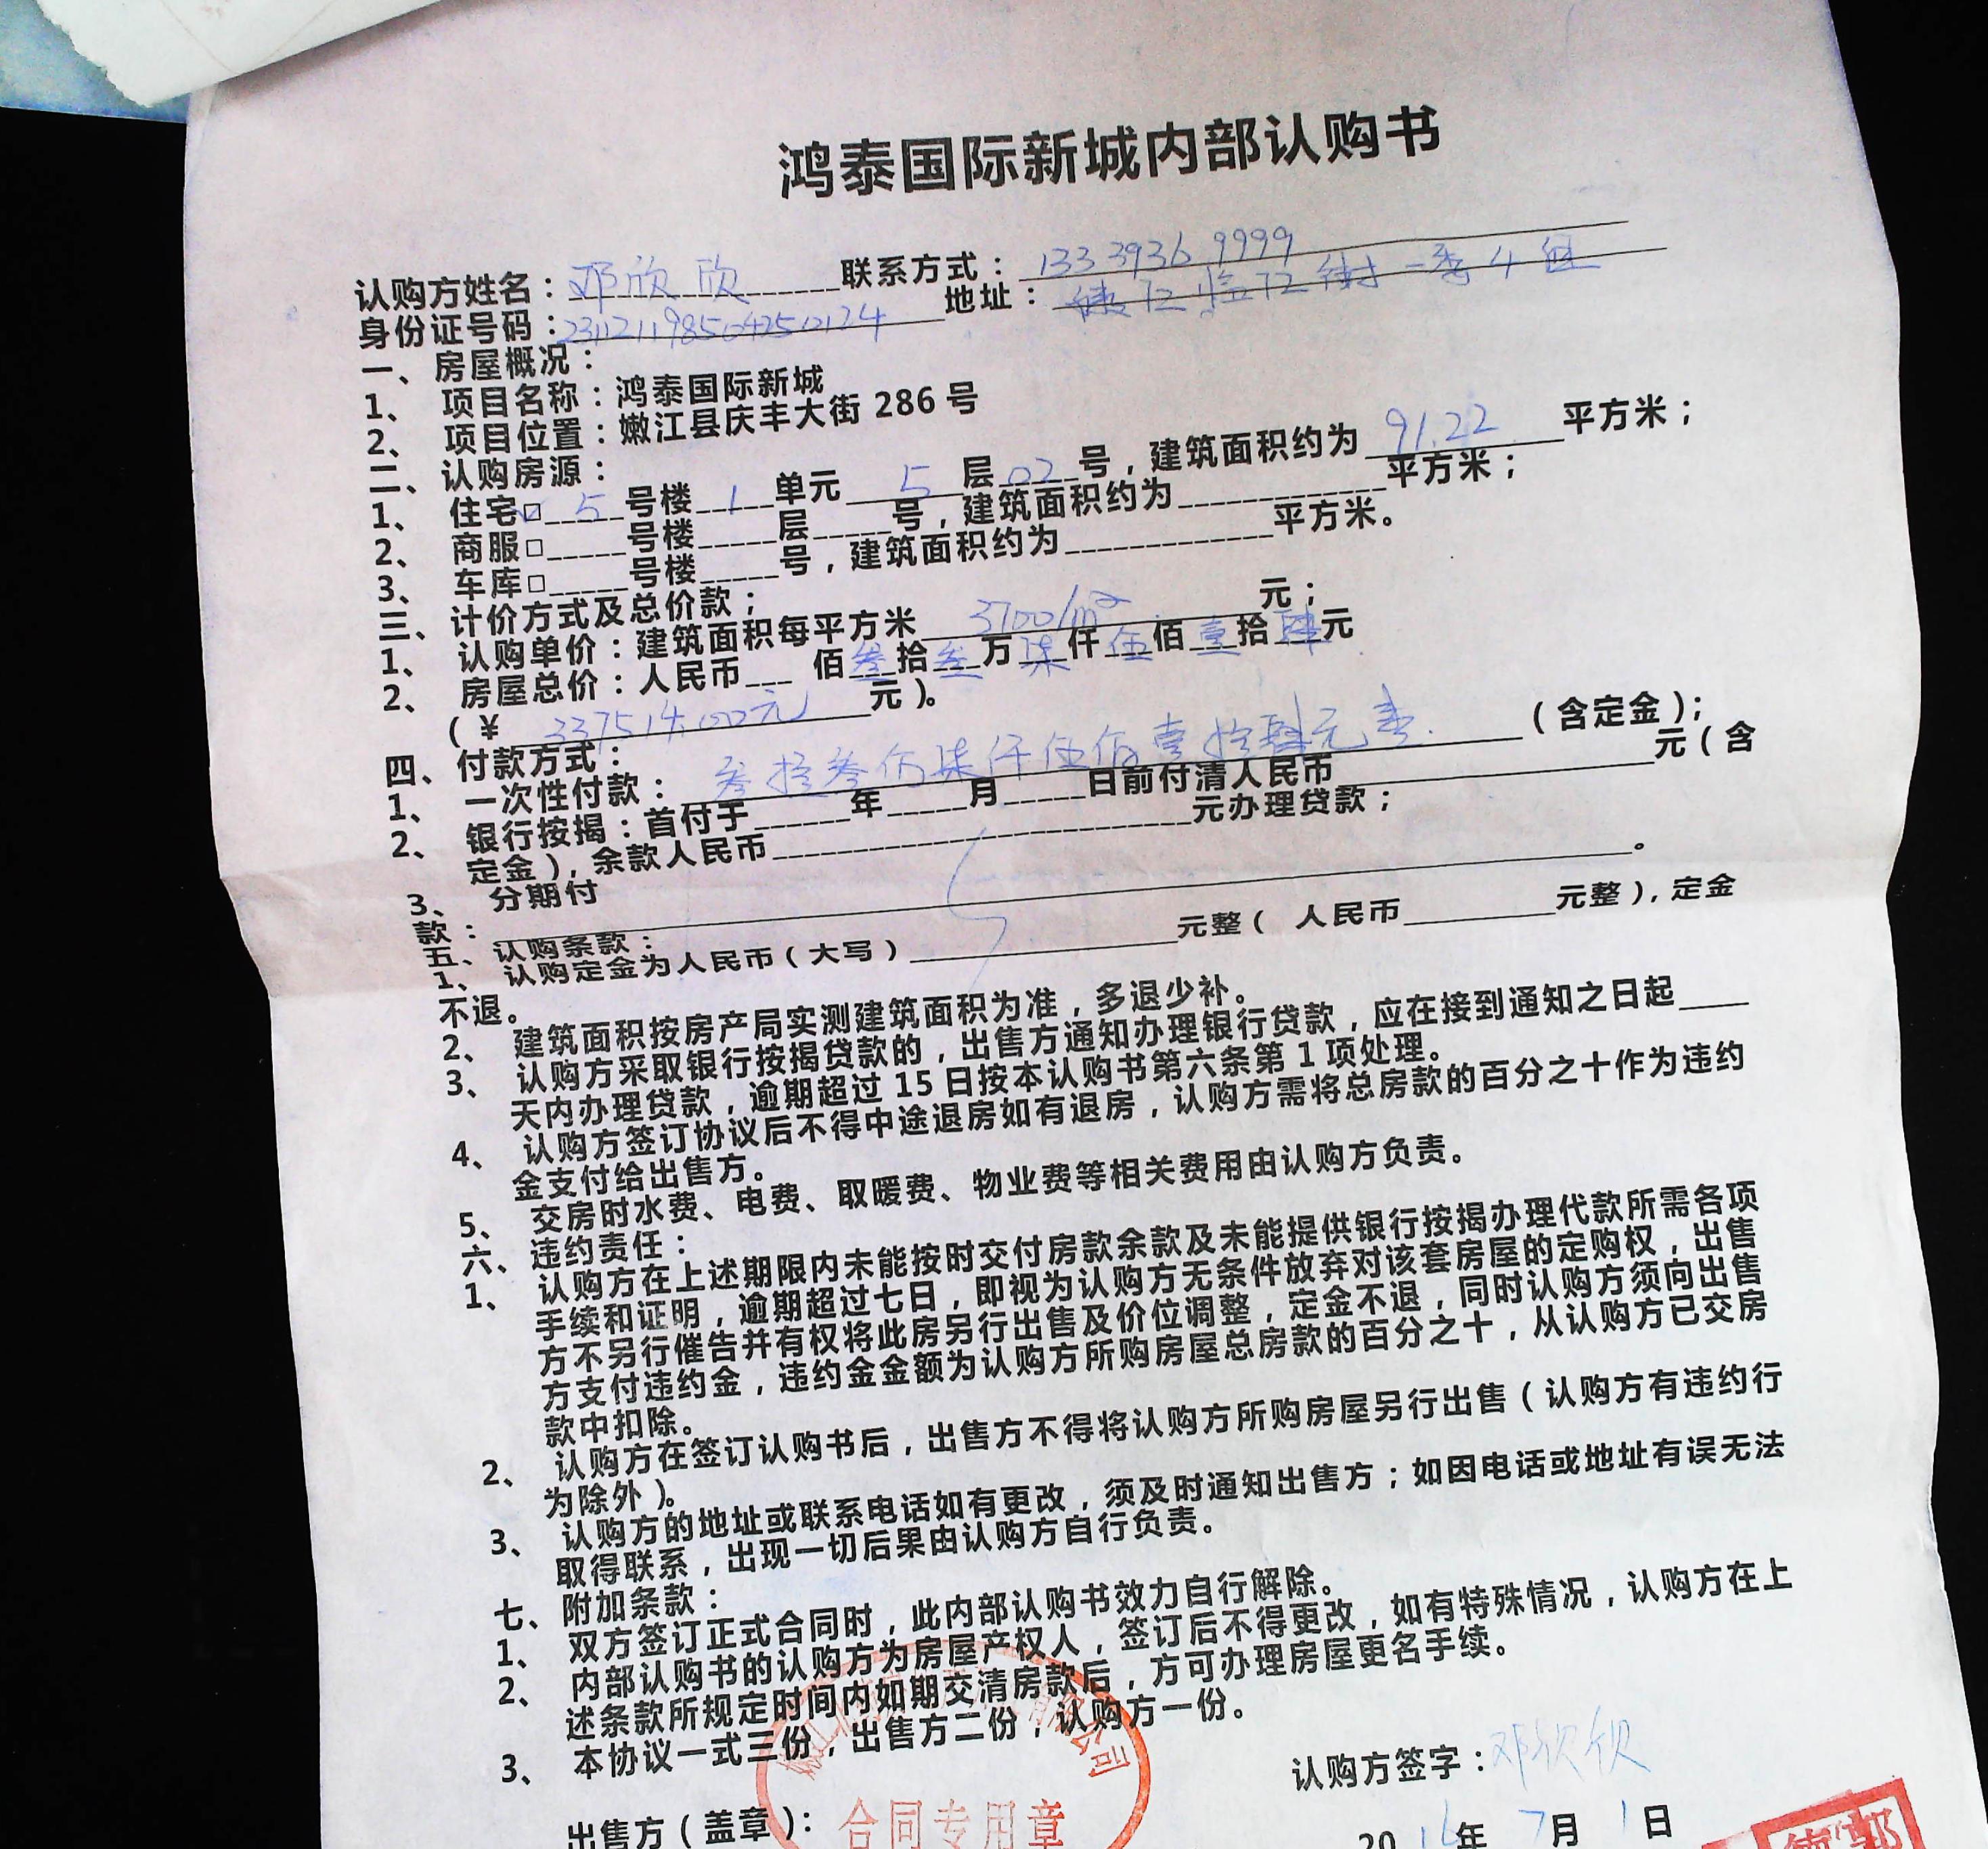 鸿泰国际新城内部认购书
认购方姓名：邓欣欣 联系方式：133 3936 9999
身份证号码：231121198504250124 地址：临江街一委4组
一、房屋概况：
1、 项目名称：鸿泰国际新城
2、 项目位置：嫩江县庆丰大街 286 号
二、认购房源：
1、 住宅□ 5 号楼 1 单元 5 层 02 号，建筑面积约为 91.22 平方米；
2、 商服□______号楼______层______号，建筑面积约为______________平方米；
3、 车库□______号楼______号，建筑面积约为______________平方米。
三、计价方式及总价款；
1、 认购单价：建筑面积每平方米 3700/m² 元；
2、 房屋总价：人民币___ 佰叁拾叁万柒仟伍佰壹拾肆元
（￥ 337514.00元 元）。
四、付款方式：
1、 一次性付款： 叁拾叁万柒仟伍佰壹拾肆元整. （含定金）；
2、 银行按揭：首付于______年______月______日前付清人民币______________元（含
定金），余款人民币______________元办理贷款；
3、 分期付
款：______________。
五、认购条款：
1、 认购定金为人民币（大写）______________元整（ 人民币__________元整），定金
不退。
2、 建筑面积按房产局实测建筑面积为准，多退少补。
3、 认购方采取银行按揭贷款的，出售方通知办理银行贷款，应在接到通知之日起____
天内办理贷款，逾期超过 15 日按本认购书第六条第 1 项处理。
4、 认购方签订协议后不得中途退房如有退房，认购方需将总房款的百分之十作为违约
金支付给出售方。
5、 交房时水费、电费、取暖费、物业费等相关费用由认购方负责。
六、违约责任：
1、 认购方在上述期限内未能按时交付房款余款及未能提供银行按揭办理代款所需各项
手续和证明，逾期超过七日，即视为认购方无条件放弃对该套房屋的定购权，出售
方不另行催告并有权将此房另行出售及价位调整，定金不退，同时认购方须向出售
方支付违约金，违约金金额为认购方所购房屋总房款的百分之十，从认购方已交房
款中扣除。
2、 认购方在签订认购书后，出售方不得将认购方所购房屋另行出售（认购方有违约行
为除外）。
3、 认购方的地址或联系电话如有更改，须及时通知出售方；如因电话或地址有误无法
取得联系，出现一切后果由认购方自行负责。
七、附加条款：
1、 双方签订正式合同时，此内部认购书效力自行解除。
2、 内部认购书的认购方为房屋产权人，签订后不得更改，如有特殊情况，认购方在上
述条款所规定时间内如期交清房款后，方可办理房屋更名手续。
3、 本协议一式三份，出售方二份，认购方一份。
认购方签字：邓欣欣
出售方（盖章）：
合同专用章
2016年 7月 1日